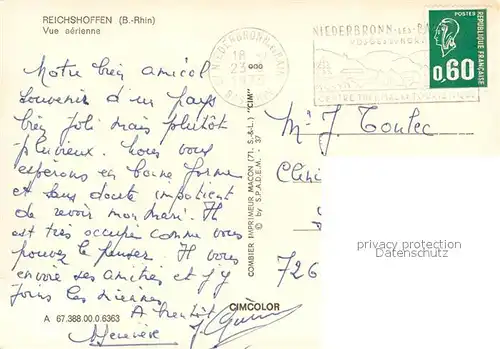 REICHSHOFFEN (B.-Rhin)
Vue aérienne
NIEDERBRONN-LES-BAINS
18
23
NIEDERBRONN-LES-BA
VOSGES DU NORD
POSTES
0,60
Notre bien amical
souvenir d'un pays
très joli mais plutôt
pluvieux. Nous vous
espérons en bonne forme
et sans doute impatient
de revoir mon mari. Il
est très occupé comme vous
pouvez le penser. Il vous
envoie ses amitiés et j'y
joins les miennes.
A bientôt
Geneviève
COMBIER IMPRIMEUR MACON (71, S.-&-L.) "CIM"
© by S.P.A.D.E.M. - 37
M. J. Toulec
726
privacy protection
Datenschutz
CIMCOLOR
A 67.388.00.0.6363